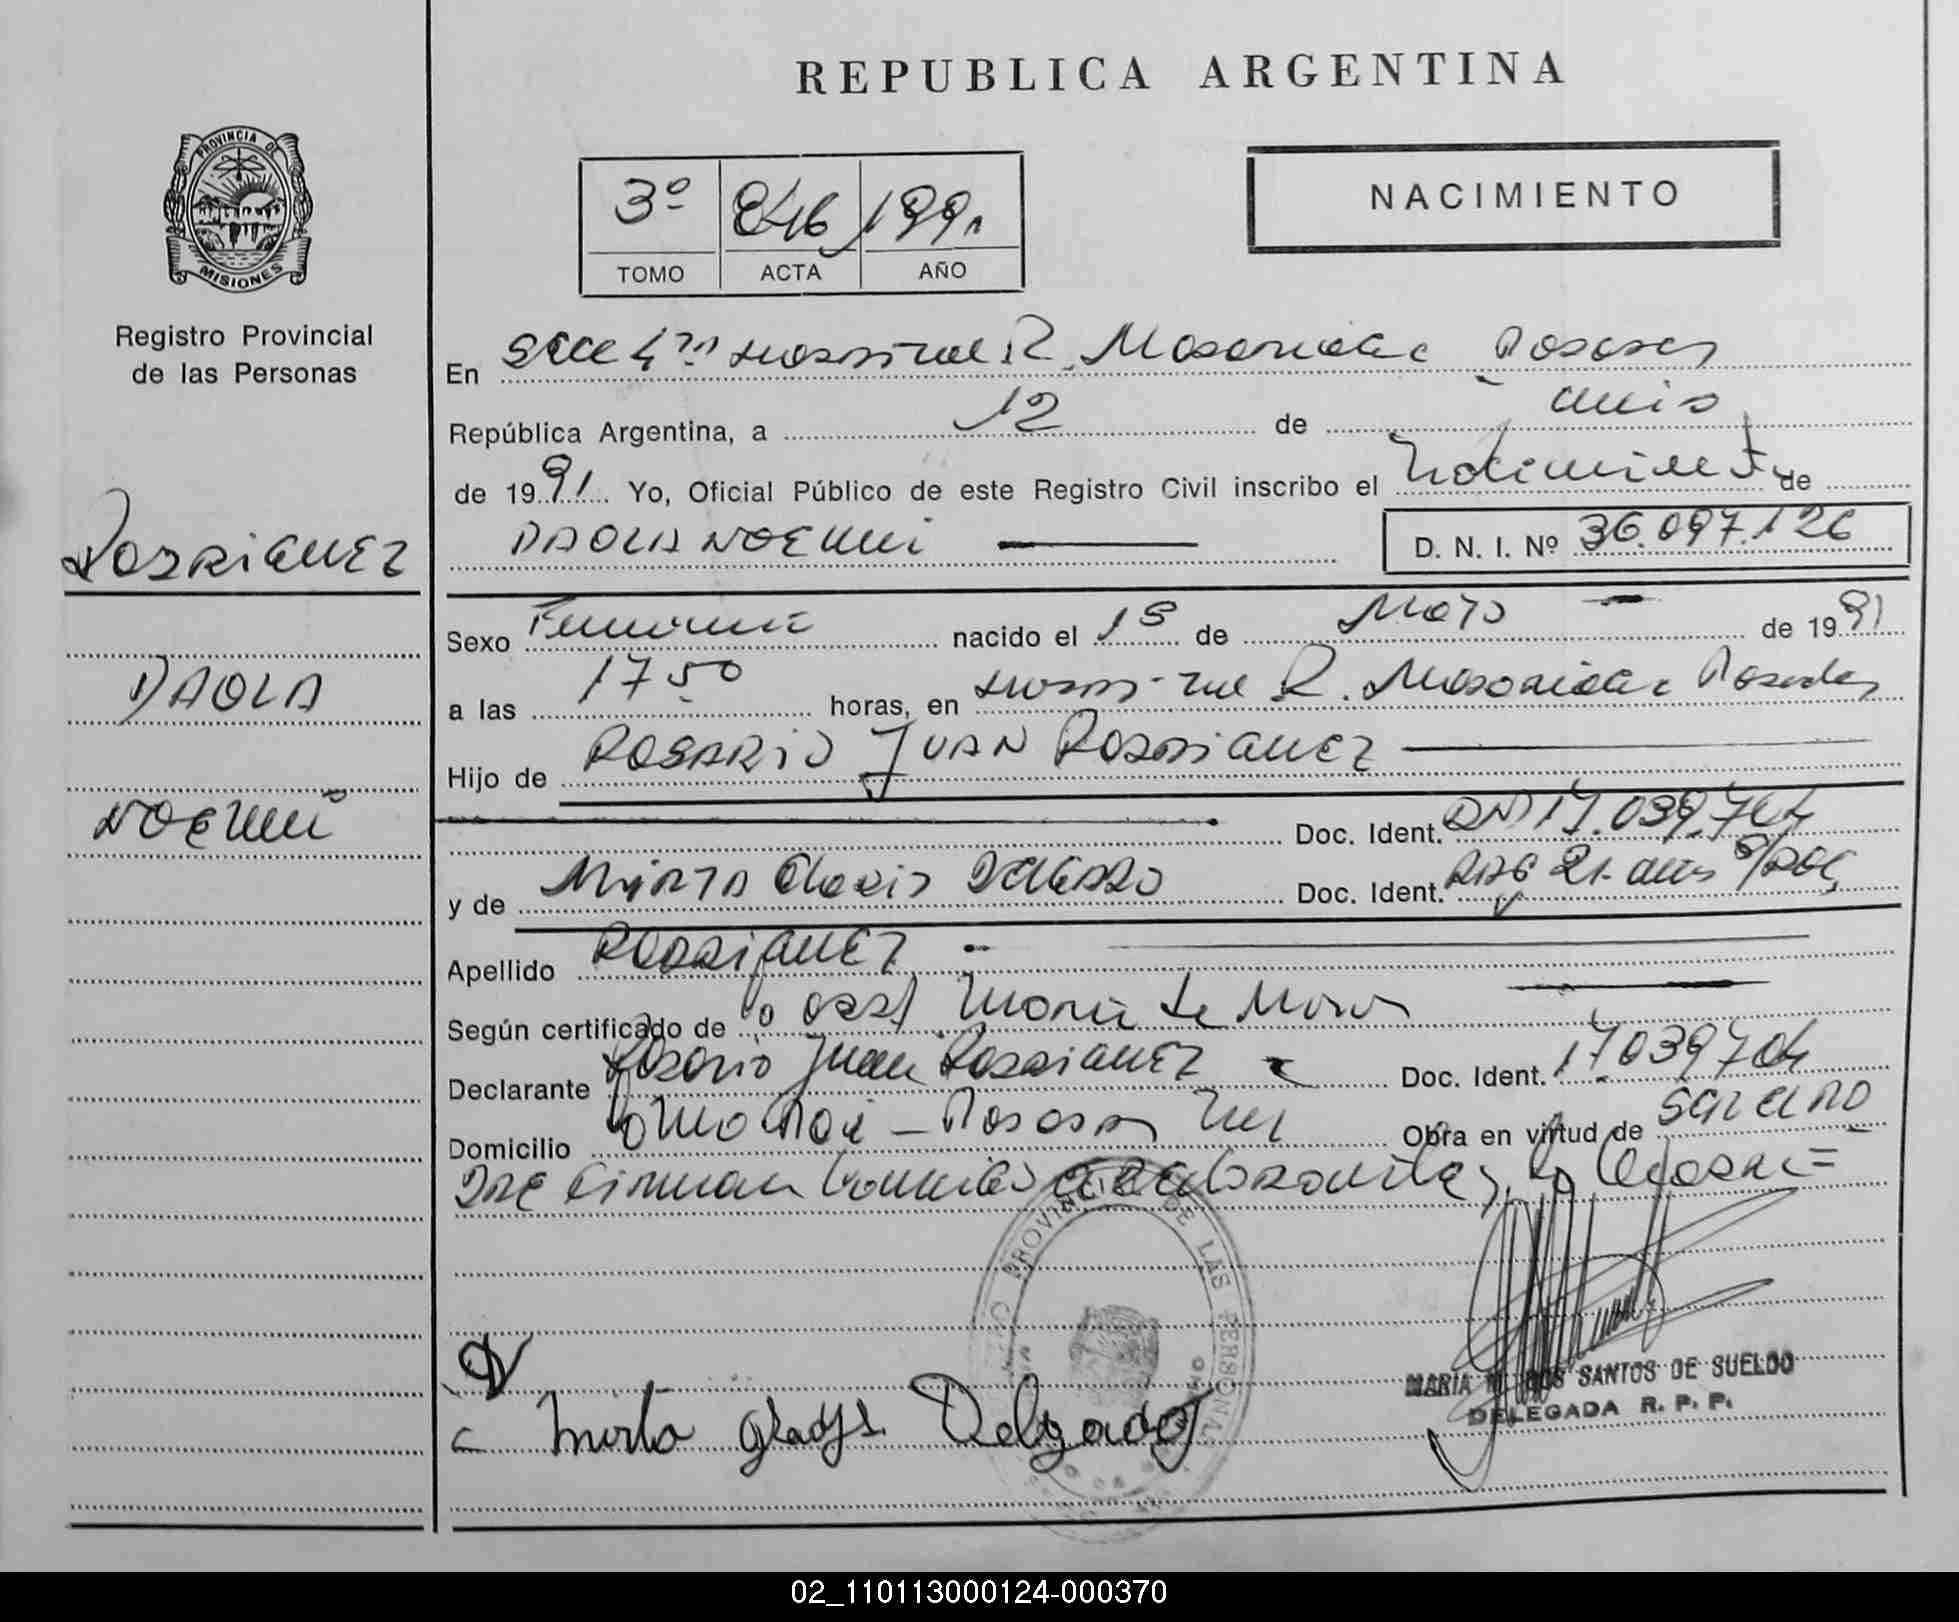 REPUBLICA ARGENTINA
PROVINCIA DE
MISIONES
Registro Provincial
de las Personas
3º 846 1991
TOMO ACTA AÑO
NACIMIENTO
En Secc 4ta Hospital R. Madariaga Posadas
República Argentina, a 12 de Junio
de 1991 Yo, Oficial Público de este Registro Civil inscribo el Nacimiento de
PAOLA NOEMI D. N. I. Nº 36.097.126
RODRIGUEZ
PAOLA
NOEMI
Sexo Femenino nacido el 18 de Mayo de 1991
a las 17 50 horas, en Hospital R. Madariaga Posadas
Hijo de ROSARIO JUAN RODRIGUEZ
Doc. Ident. DNI 17.039.704
y de MIRTA Gladis DELGADO Doc. Ident. 21
Apellido RODRIGUEZ
Según certificado de Obst. Maria de
Declarante Rosario Juan RODRIGUEZ Doc. Ident. 17039704
Domicilio Posadas Obra en virtud de
MARIA DOS SANTOS DE SUELDO
DELEGADA R. P. P.
PROVINCIAL DE LAS PERSONAS
Mirta Gladys Delgado
02_110113000124-000370